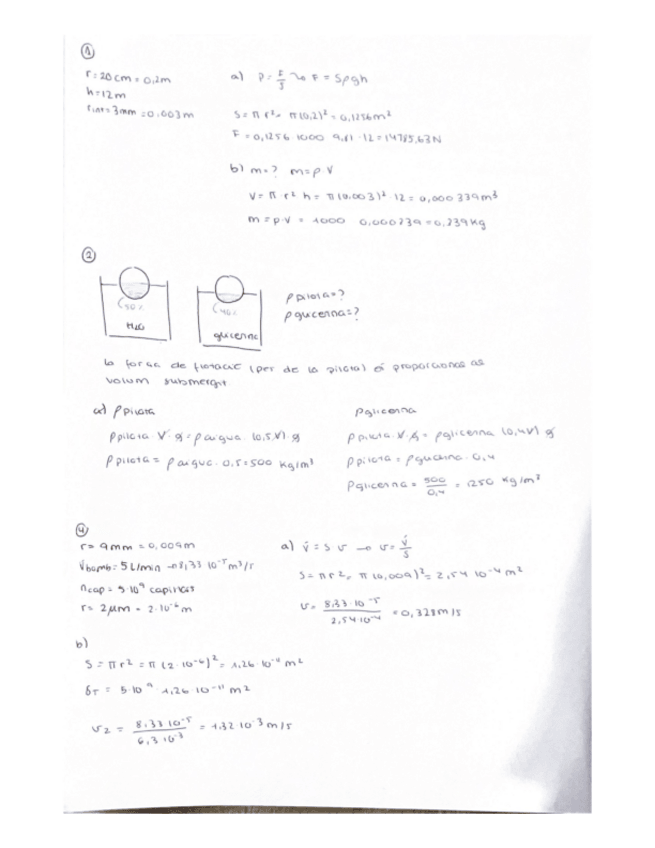 ①
r = 20 cm = 0,2m
h = 12 m
rint = 3mm = 0,003m
a) P = F/S → F = Sρgh
S = π r² = π(0,2)² = 0,1256m²
F = 0,1256 · 1000 · 9,81 · 12 = 14785,63N
b) m = ? m = ρ·V
V = π r² h = π(0,003)² · 12 = 0,000339m³
m = ρ·V = 1000 · 0,000239 = 0,239 Kg
②
50%
H₂O
40%
glicerina
ρ pilota = ?
ρ glicerina = ?
la força de flotació (per de la pilota) és proporcional as
volum submergit
a) ρ pilota
ρ pilota · V · g = ρ aigua · (0,5V) · g
ρ pilota = ρ aigua · 0,5 = 500 kg/m³
ρ glicerina
ρ pilota · V · g = ρ glicerina (0,4V) g
ρ pilota = ρ glicerina · 0,4
ρ glicerina = 500/0,4 = 1250 kg/m³
④
r = 9mm = 0,009m
V̇bomb = 5 L/min → 8,33·10⁻⁵ m³/s
ncap = 5·10⁹ capil·lars
r = 2μm = 2·10⁻⁶ m
a) V̇ = S v → v = V̇/S
S = π r² = π (0,009)² = 2,54·10⁻⁴ m²
v = 8,33·10⁻⁵/2,54·10⁻⁴ = 0,328m/s
b)
S = π r² = π (2·10⁻⁶)² = 1,26·10⁻¹¹ m²
ST = 5·10⁹ · 1,26·10⁻¹¹ m²
v2 = 8,33·10⁻⁵/6,3·10⁻³ = 1,32·10⁻³ m/s